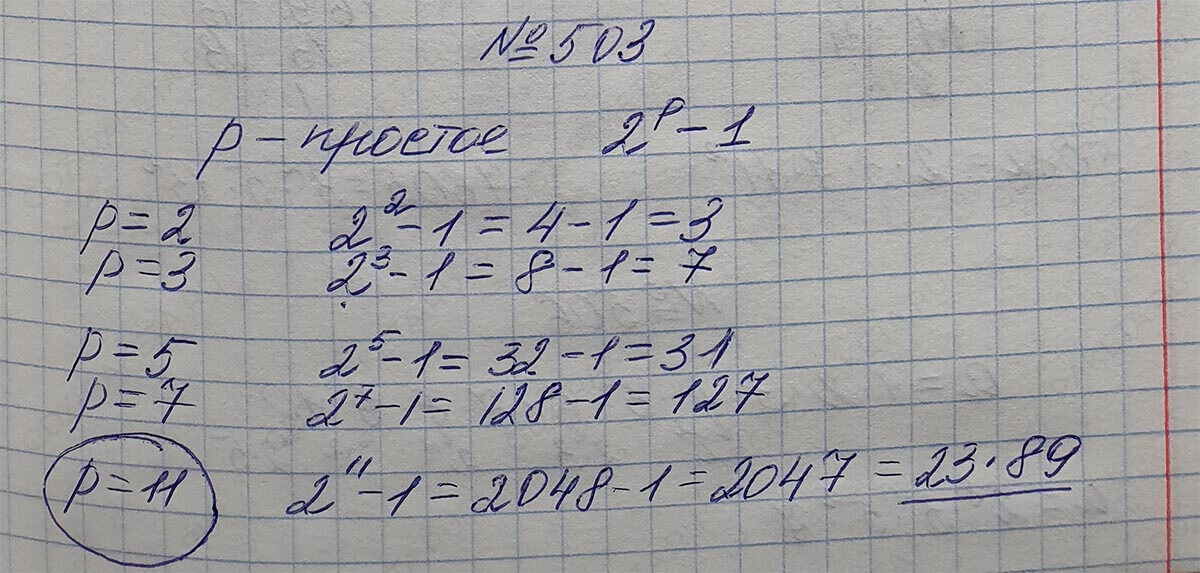 №503
p – простое 2^p – 1
p = 2 2² – 1 = 4 – 1 = 3
p = 3 2³ – 1 = 8 – 1 = 7
p = 5 2⁵ – 1 = 32 – 1 = 31
p = 7 2⁷ – 1 = 128 – 1 = 127
p = 11 2¹¹ – 1 = 2048 – 1 = 2047 = 23 · 89